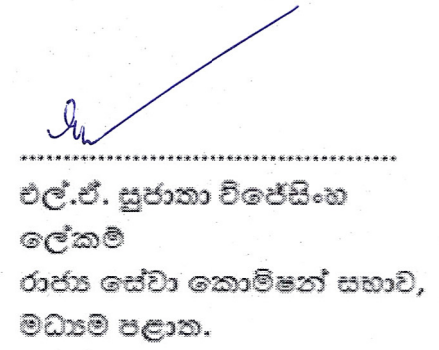 එල්.ඒ. සුජාතා විජේසිංහ
ලේකම්
රාජ්‍ය සේවා කොමිෂන් සභාව,
මධ්‍යම පළාත.